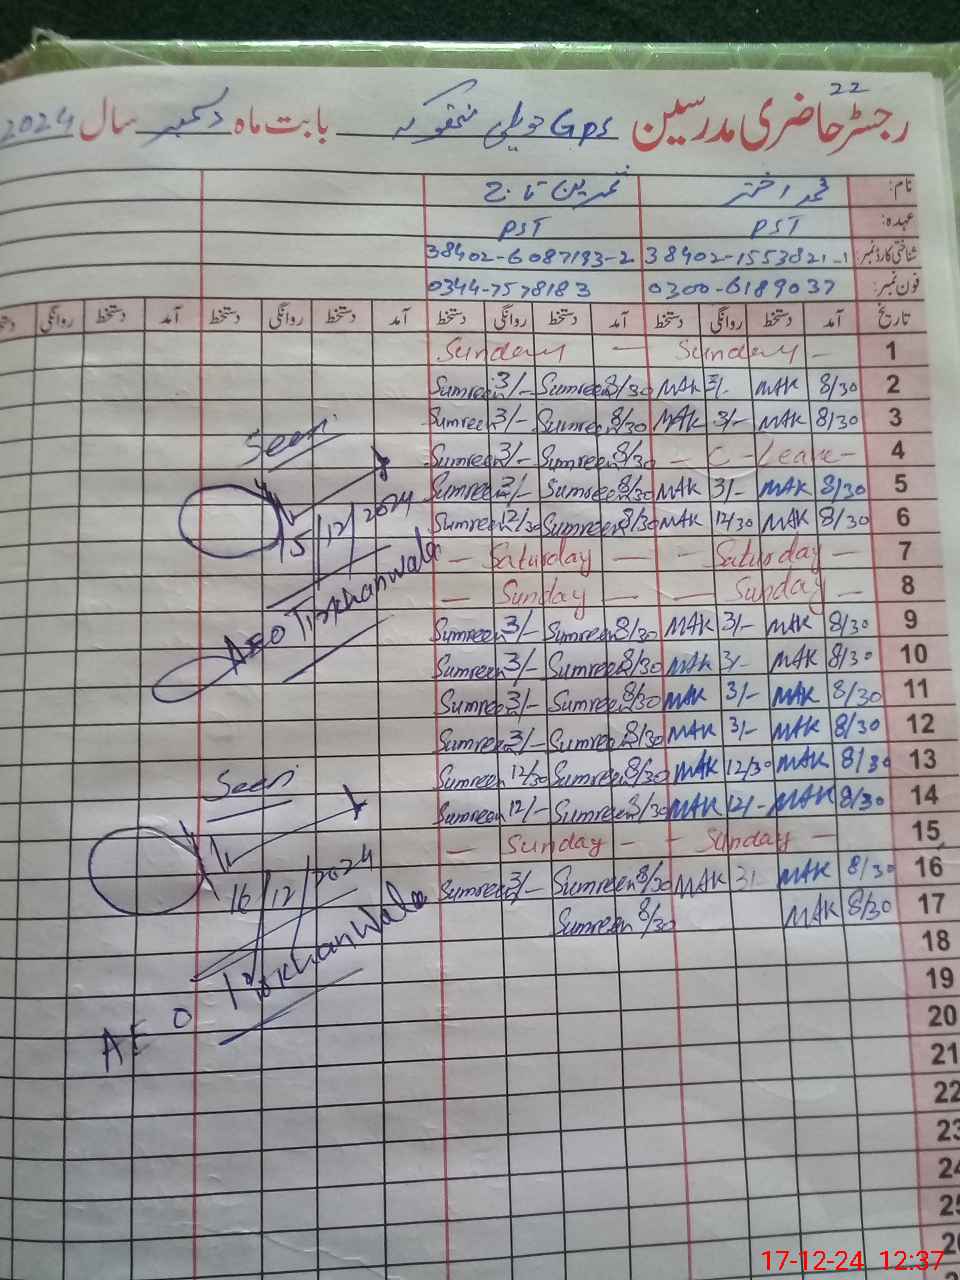 22
رجسٹر حاضری مدرسین GPS حویلی بابت ماہ دسمبر سال 2024
نام: محمد اختر ثمرین تاج
عہدہ: PST PST
شناختی کارڈ نمبر: 38402-1553821-1 38402-6087193-2
فون نمبر: 0300-6189037 0344-7578183
تاریخ آمد دستخط روانگی دستخط آمد دستخط روانگی دستخط آمد دستخط روانگی دستخط آمد دستخط روانگی دستخط
Sunday — Sunday — 1
Sumreen 3/- Sumreen 8/30 MAK 3/- MAK 8/30 2
Sumreen 3/- Sumreen 8/30 MAK 3/- MAK 8/30 3
Sumreen 3/- Sumreen 8/30 — C - Leave - 4
Sumreen 3/- Sumreen 8/30 MAK 3/- MAK 8/30 5
Sumreen 12/30 Sumreen 8/30 MAK 12/30 MAK 8/30 6
— Saturday — — Saturday — 7
— Sunday — — Sunday — 8
Sumreen 3/- Sumreen 8/30 MAK 3/- MAK 8/30 9
Sumreen 3/- Sumreen 8/30 MAK 3/- MAK 8/30 10
Sumreen 3/- Sumreen 8/30 MAK 3/- MAK 8/30 11
Sumreen 3/- Sumreen 8/30 MAK 3/- MAK 8/30 12
Sumreen 12/30 Sumreen 8/30 MAK 12/30 MAK 8/30 13
Sumreen 12/- Sumreen 8/30 MAK 12/- MAK 8/30 14
— Sunday — — Sunday — 15
Sumreen 3/- Sumreen 8/30 MAK 3/ MAK 8/30 16
Sumreen 8/30 MAK 8/30 17
18
19
20
21
22
23
24
25
26
Seen
5/12/2024
AEO Tirkhanwala
Seen
16/12/2024
AEO Tirkhanwala
17-12-24 12:37